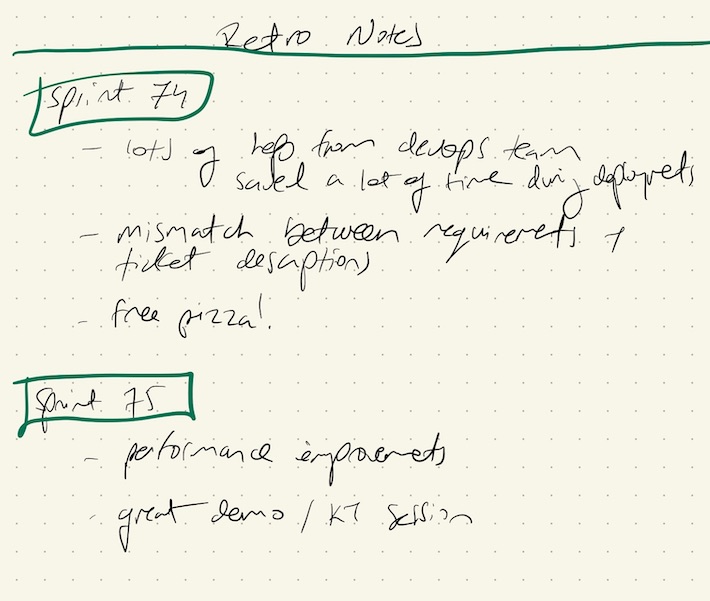 Retro Notes
sprint 74
- lots of help from devops team
saved a lot of time during deployments
- mismatch between requirements +
ticket descriptions
- free pizza!
Sprint 75
- performance improvements
- great demo / KT session